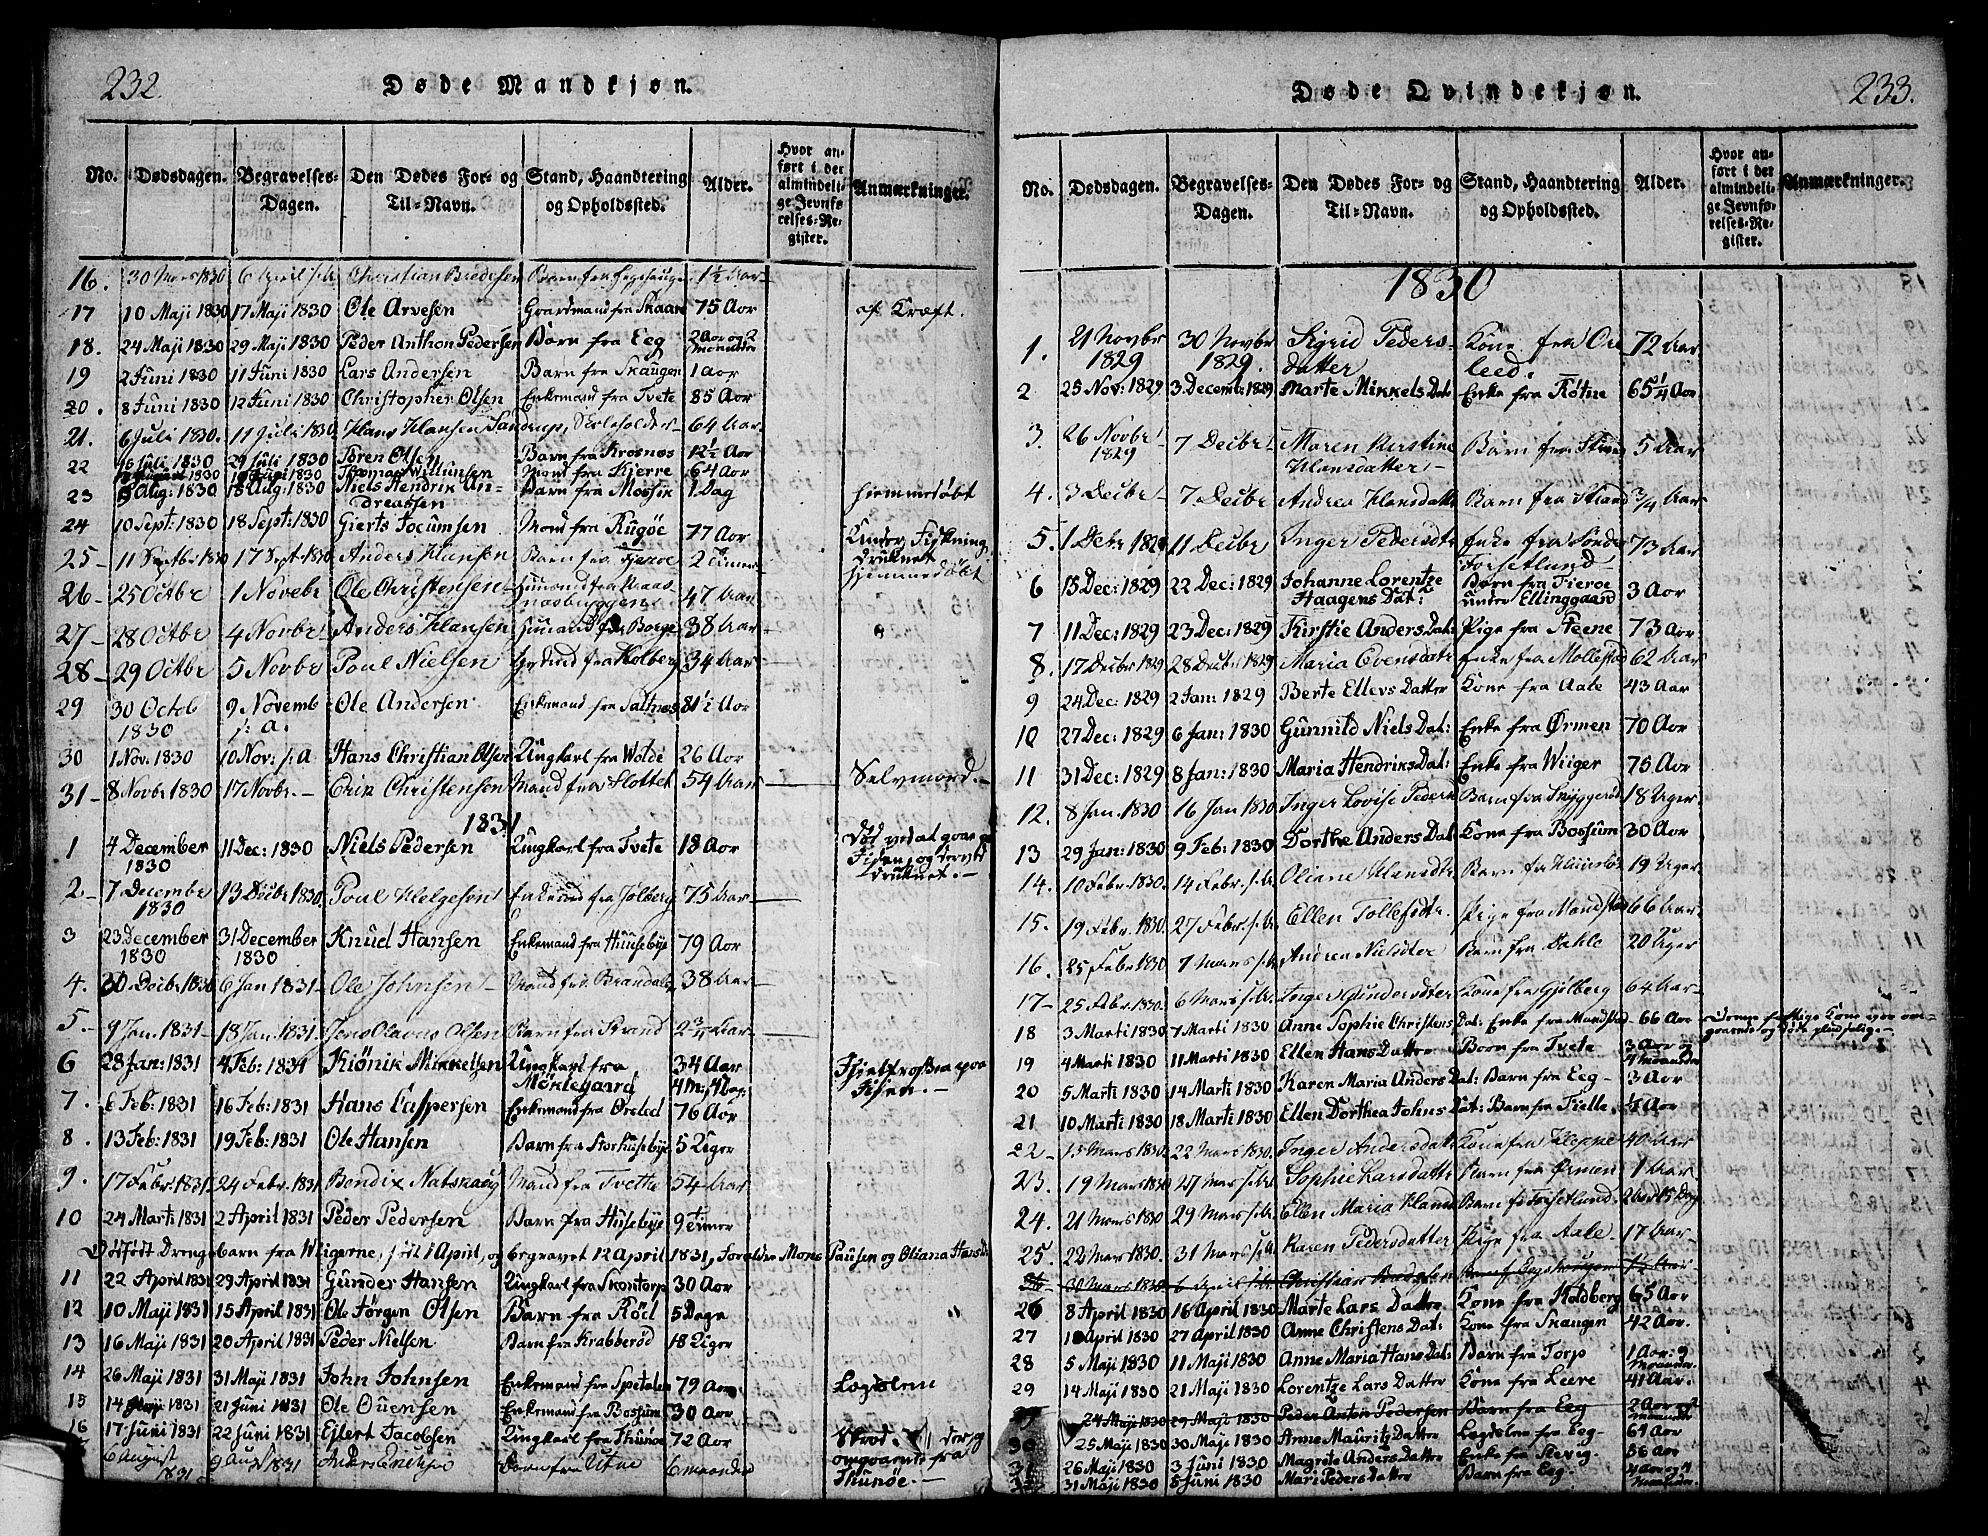 232.
Døde Mandkjøn.
No. Dødsdagen. Begravelses-Dagen. Den Dødes For- og Til-Navn. Stand, Haandtering og Opholdssted. Alder. Hvor anført i det almindelige Jevnførelses-Register. Anmærkninger.
16. 30 Mars 1830 6 April s.A. Christian Bredesen Barn fra 1½ Aar
17 10 Maji 1830 17 Maji 1830 Ole Arvesen Gaardmand fra Skaare 75 Aar af Kræft.
18. 24 Maji 1830 29 Maji 1830 Peder Anthon Pedersen Barn fra Eeg 2 Aar og 2 Maaneder
19 2 Juni 1830 11 Juni 1830 Lars Andersen Barn fra Skaugen 1 Aar
20. 8 Juni 1830 12 Juni 1830 Christopher Olsen Enkemand fra Tvete 85 Aar
21. 6 Juli 1830. 11 Juli 1830 Hans Hansen Skoleholder 64 Aar
22 15 Juli 1830 24 Juli 1830 Søren Olsen Barn fra Krosnes 12½ Aar
Thomas Willumsen Mand fra Kjerre 64 Aar
23 9 Aug: 1830 18 Aug: 1830 Niels Hendrik Andreassen Barn fra Mossik 1 Dag hiemmedøbt
24 10 Sept: 1830 18 Sept: 1830 Gierts Jocumsen Mand fra Rugøe 77 Aar Under Fiskning druknet
25 11 Septbr 1830 17 Sept. 1830 Anders Hansen Barn fra 2 Timer hjemmedøbt
26 25 Octbr 1 Novebr Ole Christensen 47 Aar
27 28 Octbr 4 Novbr Anders Hansen Huusmand fra Borge 38 Aar
28 29 Octbr 5 Novbr Poul Nielsen fra Kolberg 34 Aar
29 30 Octob 1830 9 Novemb s: a. Ole Andersen Enkemand fra Saltnes 81½ Aar
30 1 Nov. 1830 10 Nov: s: A Hans Christian Olsen Ungkarl fra Wolde 26 Aar
31 8 Novbr 1830 17 Novbr. Erik Christensen Mand fra Slottet 54 Aar Selvmord.
1831
1 4 December 1830 11 Dec: 1830 Niels Pedersen Ungkarl fra Tvete 18 Aar Død ved at gaae paa Isen, og derved druknet.
2 7 Decembr 1830 13 Decbr 1830. Poul Helgesen Enkemand fra Jølberg 75 Aar
3 23 December 1830 31 December 1830 Knud Hansen Enkemand fra Huusebye 79 Aar
4. 30 Decbr 1830 6 Jan 1831 Ole Johnsen Mand fra Brandal 38 Aar
5 9 Jan. 1831 18 Jan. 1831. Jens Olavus Olsen Barn fra Strand 2¾ Aar
6 28 Jan: 1831 4 Feb: 1831 Kiönik Mikkelsen Ungkarl fra Møklegaard 34 Aar 4 M: 4 Dag: Ihjelfrossen paa Isen.
7. 6 Feb: 1831 16 Feb: 1831 Hans Caspersen Enkemand fra Ørstad 76 Aar
8. 13 Feb: 1831 19 Feb: 1831 Ole Hansen Barn fra Storhusebye 5 Uger
9. 17 Febr. 1831 24 Febr. 1831 Bendix Natskaug Mand fra Tvette 54 Aar
10 24 Marti 1831 2 April 1831 Peder Pedersen Barn fra Husebye 9 Timer
Dødfødt Drengebarn fra Wiigerne, født 1 April, og begravet 12 April 1831, Forældre Mons Paulsen og Oliana Hansd:
11 22 April 1831 29 April 1831 Gunder Hansen Ungkarl fra Skontorp 30 Aar
12 10 Maji 1831 15 April 1831 Ole Jørgen Olsen Barn fra Röd 5 Dage
13 16 Maji 1831 20 April 1831 Peder Nielsen Barn fra Krabberöd 18 Uger
14 26 Maji 1831 31 Maji 1831 John Johnsen Enkemand fra Spetalen 79 Aar Lægdslem
15 14 1831 21 Juni 1831 Ole Ouensen Enkemand fra Bossum 30 Aar
16 17 Juni 1831 22 Juni 1831 Ejlert Jacobsen Ungkarl fra Thunøe 72 Aar omgaaende fra Thunøe.
6 August 1831 9 Aug 1831 Anders Barn fra Utne 6 maaneder
233.
Døde Qvindekjøn.
No. Dødsdagen. Begravelses-Dagen. Den Dødes For- og Til-Navn. Stand, Haandtering og Opholdssted. Alder. Hvor anført i det almindelige Jevnførelses-Register. Anmærkninger.
1830
1. 21 Novbr 1829 30 Novbr 1829. Sigrid Pedersdatter Kone fra Oreleed. 72 Aar
2 25 Nov: 1829 3 Decemb: 1829 Marte Mikkels Dat: Enke fra Rötne 65¼ Aar
3. 26 Novbr 1829 7 Decbr Maren Kirstine Hansdatter Barn fra 5 Aar
4. 3 Decbr 7 Decbr Andrea Hansdatter Barn fra Strand ¾ Aar
5. 1 Decbr 1829 11 Decbr Inger Pedersdtr Enke fra Søndre Forsetlund 73 Aar
6 15 Dec: 1829 22 Dec: 1829 Johanne Lorentze Haagens Dat: Barn fra Tieroe under Ellinggaard 3 Aar
7 11 Dec: 1829 23 Dec: 1829 Kirstie Anders Dat: Pige fra Steene 73 Aar
8. 17 Decbr 1829 28 Decbr 1829 Maria Evensdtr Enke fra Mollestad 62 Aar
9 24 Dec: 1829 2 Jan: 1829 Berte Ellevs Datter Kone fra Aale 43 Aar
10 27 Dec: 1829 6 Jan: 1830 Gunnild Niels Dat: Enke fra Ørmen 70 Aar
11 31 Dec: 1829 8 Jan: 1830 Maria Hendriks Dat: Enke fra Wiiger 75 Aar
12. 8 Jan. 1830 16 Jan 1830 Inger Lovise Peders Barn fra Snyggerød 18 Uger
13 29 Jan: 1830 9 Feb: 1830 Dorthe Anders Dat: Kone fra Bossum 30 Aar
14. 10 Febr. 1830. 14 Febr. s.A. Oliane Hansdtr Barn fra 19 Uger
15. 19 Febr. 1830 27 Febr. s.A. Ellen Tollefsdtr. Pige fra Mandstad 66 Aar
16. 25 Febr 1830 7 Mars s.A. Andrea Nielsdter Barn fra Dahle 20 Uger
17 25 Febr. 1830. 6 Mars s.A. Inger Gundersdter Kone fra Gjølberg 64 Aar
18 3 Marti 1830 7 Marti 1830 Anne Sophie Christens Dat: Enke fra Mandstad 66 Aar Denne Kone var omgaaende og døde pludselig.
19 4 Marti 1830 11 Marti 1830 Ellen Hans Datter Barn fra Tvete 3 Aar og 4 Maaneder
20 5 Marti 1830 14 Marti 1830 Karen Maria Anders Dat: Barn fra Eeg 3 Aar
21 10 Marti 1830 18 Marti 1830 Ellen Dorthea Johns Dat: Barn fra Tielle ½ Aar
22 15 Mars 1830. 22 Mars 1830. Inger Andersdatter Kone fra Kleppe 40 Aar
23. 19 Mars 1830 27 Mars s.A. Sophie Larsdatter Barn fra Ørmen 1 Aar
24. 21 Mars 1830 29 Mars s.A. Ellen Maria Hansd Barn fr Forsetlund 2 Aar 15 Dag
25. 22 Mars 1830. 31 Mars s.A. Karen Pedersdatter Pige fra Aale 17 Aar
26 30 Mars 1830 6 April s.A. Christian Bredesen Barn f. 1½ Aar
26 8 April 1830 16 April 1830 Marte Lars Datter Kone fra Holdberg 65 Aar
27 18 April 1830 27 April 1830 Anne Christens Dat: Kone fra Skaugen 42 Aar.
28 5 Maji 1830 11 Maji 1830 Anne Maria Hans Dat: Barn fra Torp 1 Aar: 9 Maaneder
29 14 Maji 1830 21 Maji 1830 Lorentze Lars Datter Kone fra Leere 41 Aar.
29 24 Maji 1830 29 Maji 1830 Peder Anton Pedersen Barn fra Eeg 2 Aar og 2 Maaneder
30 25 Maji 1830 30 Maji 1830 Anne Mauritz Datter Lægdslem fra Eeg 64 Aar
31 26 Maji 1830 3 Juni 1830 Magrete Anders Datter Enke fra Revig 56 Aar
32 31 Maji 1830 5 Juni 1830 Mari Peders Datter Barn fra Eeg 4 Aar og 7 Maaneder